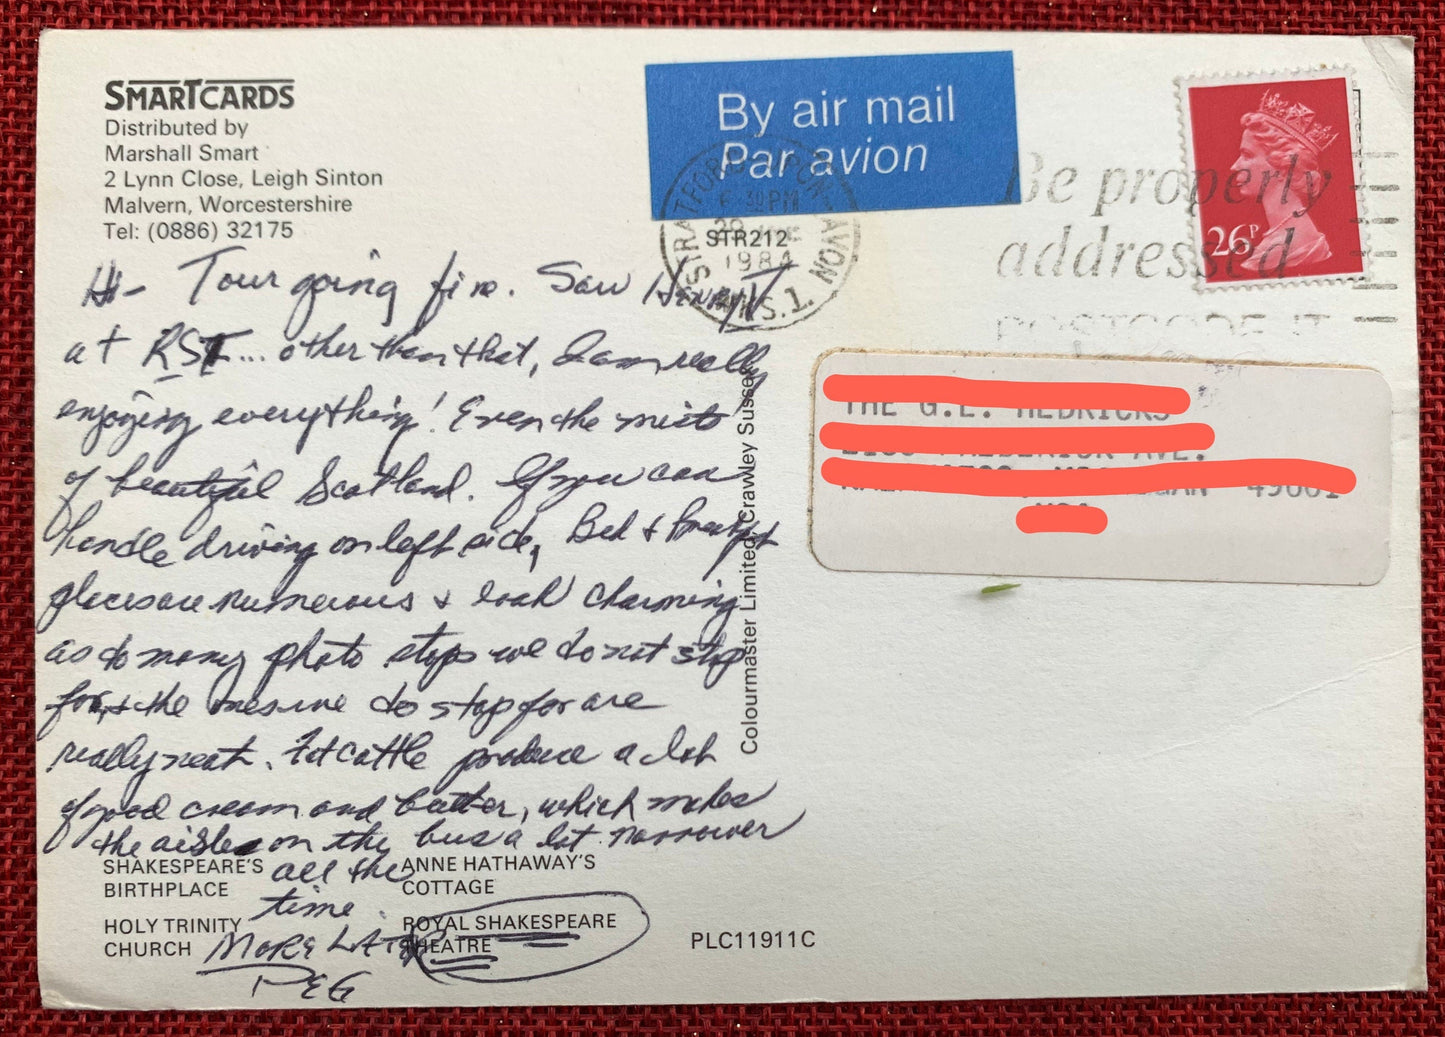 SMARTCARDS
Distributed by
Marshall Smart
2 Lynn Close, Leigh Sinton
Malvern, Worcestershire
Tel: (0886) 32175
By air mail
Par avion
STRATFORD UPON AVON
6 30 PM
1984
STR212
Be properly
addressed
POSTCODE IT
26P
Hi - Tour going fine. Saw Henry V
at RST ... other than that, I am really
enjoying everything! Even the mists
of beautiful Scotland. If you can
handle driving on left side, Bed & Breakfst
places are numerous & look charming
as do many photo stops we do not stop
for, & the ones we do stop for are
really neat. Fat cattle produce a lot
of good cream and butter, which makes
the aisle on the bus a lot narrower
all the
time.
MORE LATER
PEG
SHAKESPEARE'S
BIRTHPLACE
ANNE HATHAWAY'S
COTTAGE
HOLY TRINITY
CHURCH
ROYAL SHAKESPEARE
THEATRE
PLC11911C
Colourmaster Limited, Crawley Sussex
THE G.E. HEDRICKS
AVE.